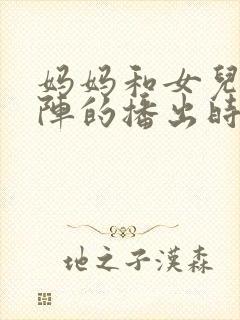 妈妈和女兒
陣的播出時
地之子漢森